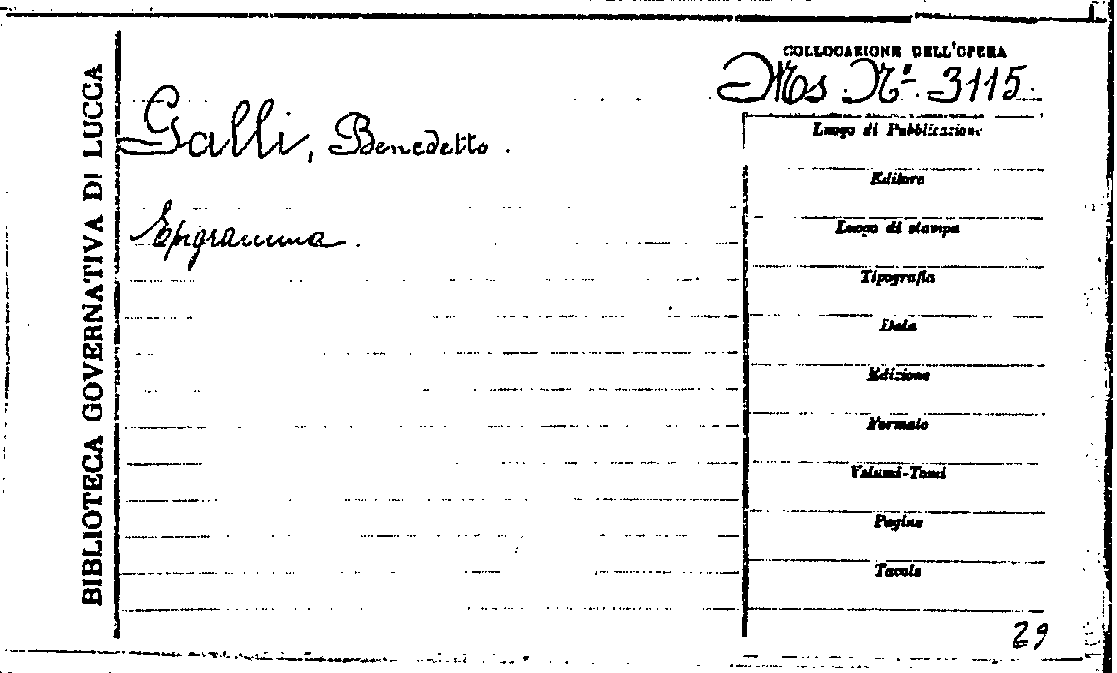 BIBLIOTECA GOVERNATIVA DI LUCCA
COLLOCAZIONE DELL'OPERA
Ms. Nº. 3115.
Galli, Benedetto.
Epigramma.
Luogo di Pubblicazione
Editore
Luogo di stampa
Tipografia
Data
Edizione
Formato
Volumi-Tomi
Pagine
Tavole
29